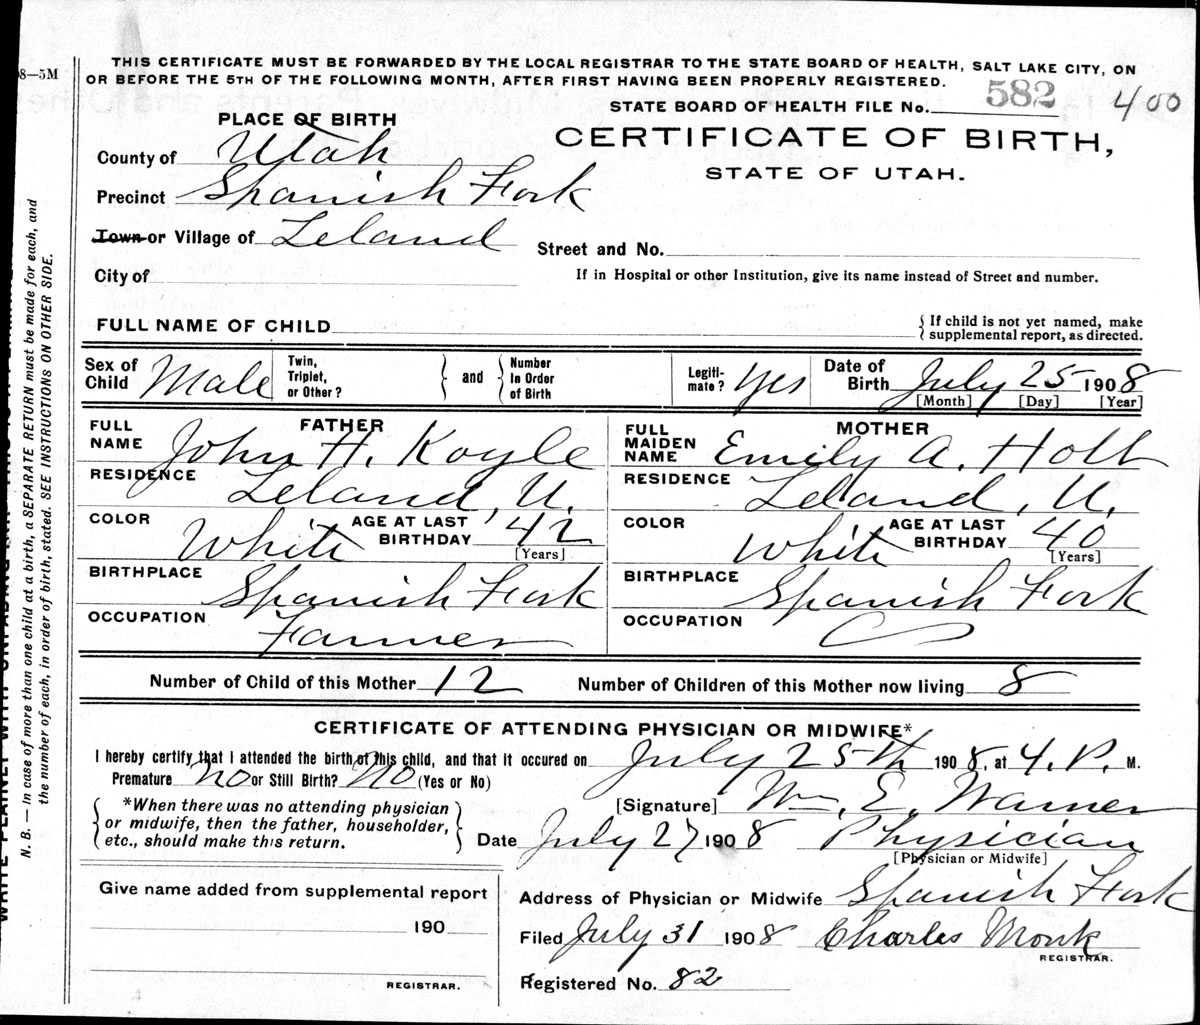 8—5M
THIS CERTIFICATE MUST BE FORWARDED BY THE LOCAL REGISTRAR TO THE STATE BOARD OF HEALTH, SALT LAKE CITY, ON
OR BEFORE THE 5TH OF THE FOLLOWING MONTH, AFTER FIRST HAVING BEEN PROPERLY REGISTERED.
STATE BOARD OF HEALTH FILE No. 582 400
PLACE OF BIRTH
CERTIFICATE OF BIRTH,
STATE OF UTAH.
County of Utah
Precinct Spanish Fork
Town or Village of Leland
Street and No.
City of
If in Hospital or other Institution, give its name instead of Street and number.
FULL NAME OF CHILD
{ If child is not yet named, make
supplemental report, as directed.
Sex of Child Male Twin, Triplet, or Other? } and { Number In Order of Birth Legiti-mate? Yes Date of Birth July 25 1908
[Month] [Day] [Year]
FATHER MOTHER
FULL NAME John H. Koyle FULL MAIDEN NAME Emily A. Holt
RESIDENCE Leland, U. RESIDENCE Leland, U.
COLOR White AGE AT LAST BIRTHDAY 42 [Years] COLOR White AGE AT LAST BIRTHDAY 40 [Years]
BIRTHPLACE Spanish Fork BIRTHPLACE Spanish Fork
OCCUPATION Farmer OCCUPATION
Number of Child of this Mother 12 Number of Children of this Mother now living 8
CERTIFICATE OF ATTENDING PHYSICIAN OR MIDWIFE*
I hereby certify that I attended the birth of this child, and that it occured on July 25th 1908, at 4. P. M.
Premature No or Still Birth? No (Yes or No)
[Signature] Wm. E. Warner
{ *When there was no attending physician
or midwife, then the father, householder,
etc., should make this return. }
Date July 27 1908 Physician
[Physician or Midwife]
Give name added from supplemental report
190
REGISTRAR.
Address of Physician or Midwife Spanish Fork
Filed July 31 1908 Charles Monk
REGISTRAR.
Registered No. 82
N. B. — In case of more than one child at a birth, a SEPARATE RETURN must be made for each, and
the number of each, in order of birth, stated. SEE INSTRUCTIONS ON OTHER SIDE.